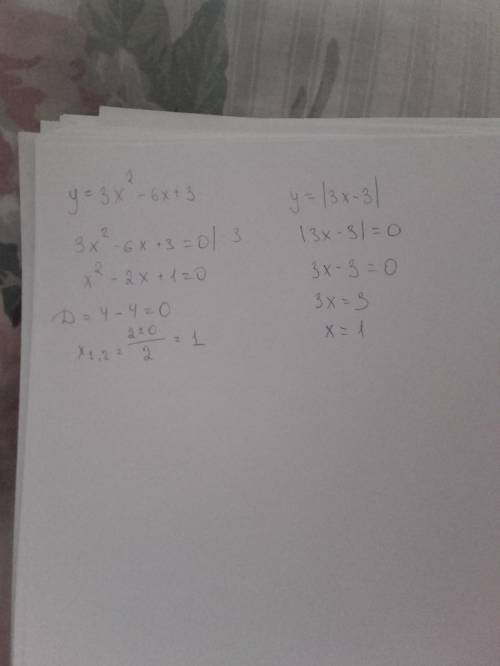 y = 3x² - 6x + 3
3x² - 6x + 3 = 0 | : 3
x² - 2x + 1 = 0
D = 4 - 4 = 0
x₁,₂ = (2±0)/2 = 1
y = |3x - 3|
|3x - 3| = 0
3x - 3 = 0
3x = 3
x = 1